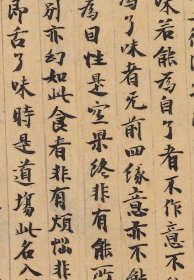 味若能為自了者不作意不
為了味者无前四緣意亦不能
為因性是空果終非有能所
別亦幻如此食者非有煩惱非
即舌了味時是道場此名入